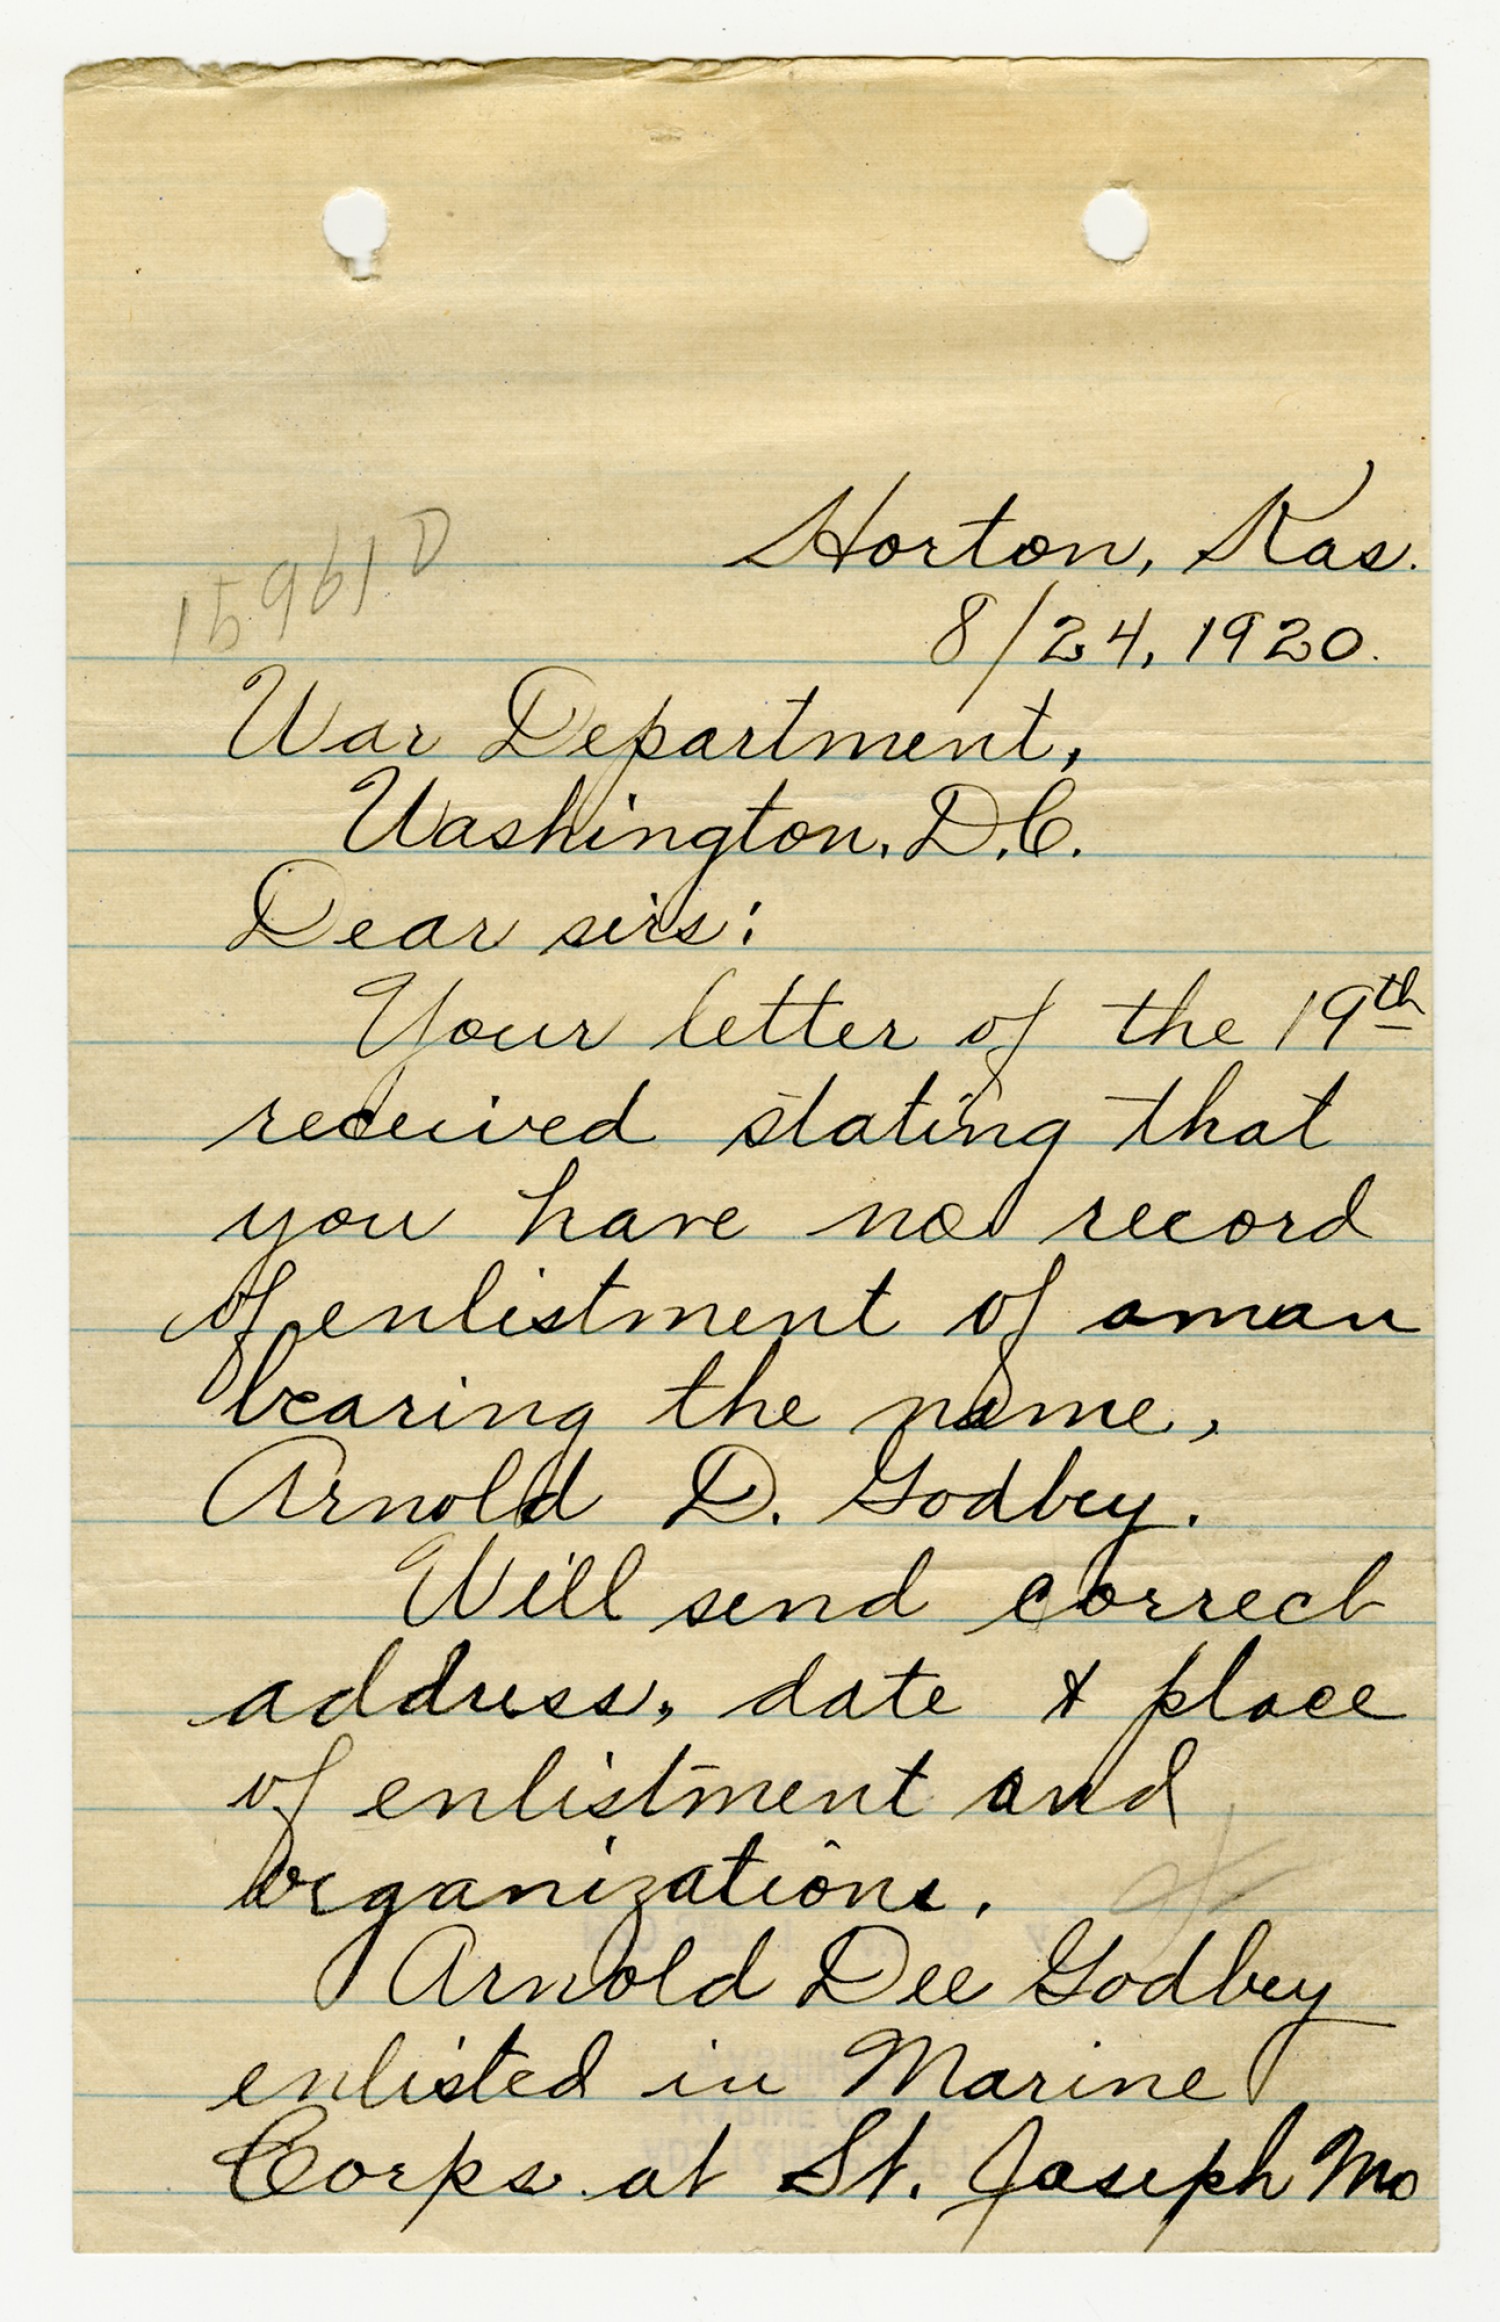 Horton, Kas.
15961 D
8/24, 1920.
War Department,
Washington, D.C.
Dear sirs:
Your letter of the 19th
received stating that
you have no record
of enlistment of a man
bearing the name,
Arnold D. Godbey.
Will send correct
address, date & place
of enlistment and
organizations.
Arnold Dee Godbey
enlisted in Marine
Corps at St. Joseph Mo